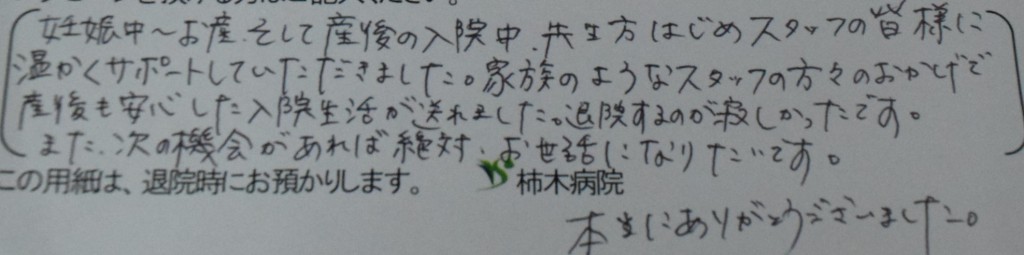 ご記入ください。
妊娠中〜お産、そして産後の入院中、先生方はじめスタッフの皆様に
温かくサポートしていただきました。家族のようなスタッフの方々のおかげで
産後も安心した入院生活が送れました。退院するのが寂しかったです。
また、次の機会があれば絶対、お世話になりたいです。
この用紙は、退院時にお預かりします。 柿木病院
本当にありがとうございました。